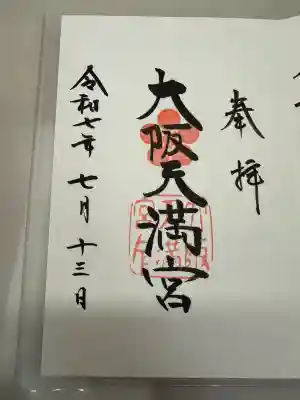 奉拝
大阪天満宮
令和七年七月十三日